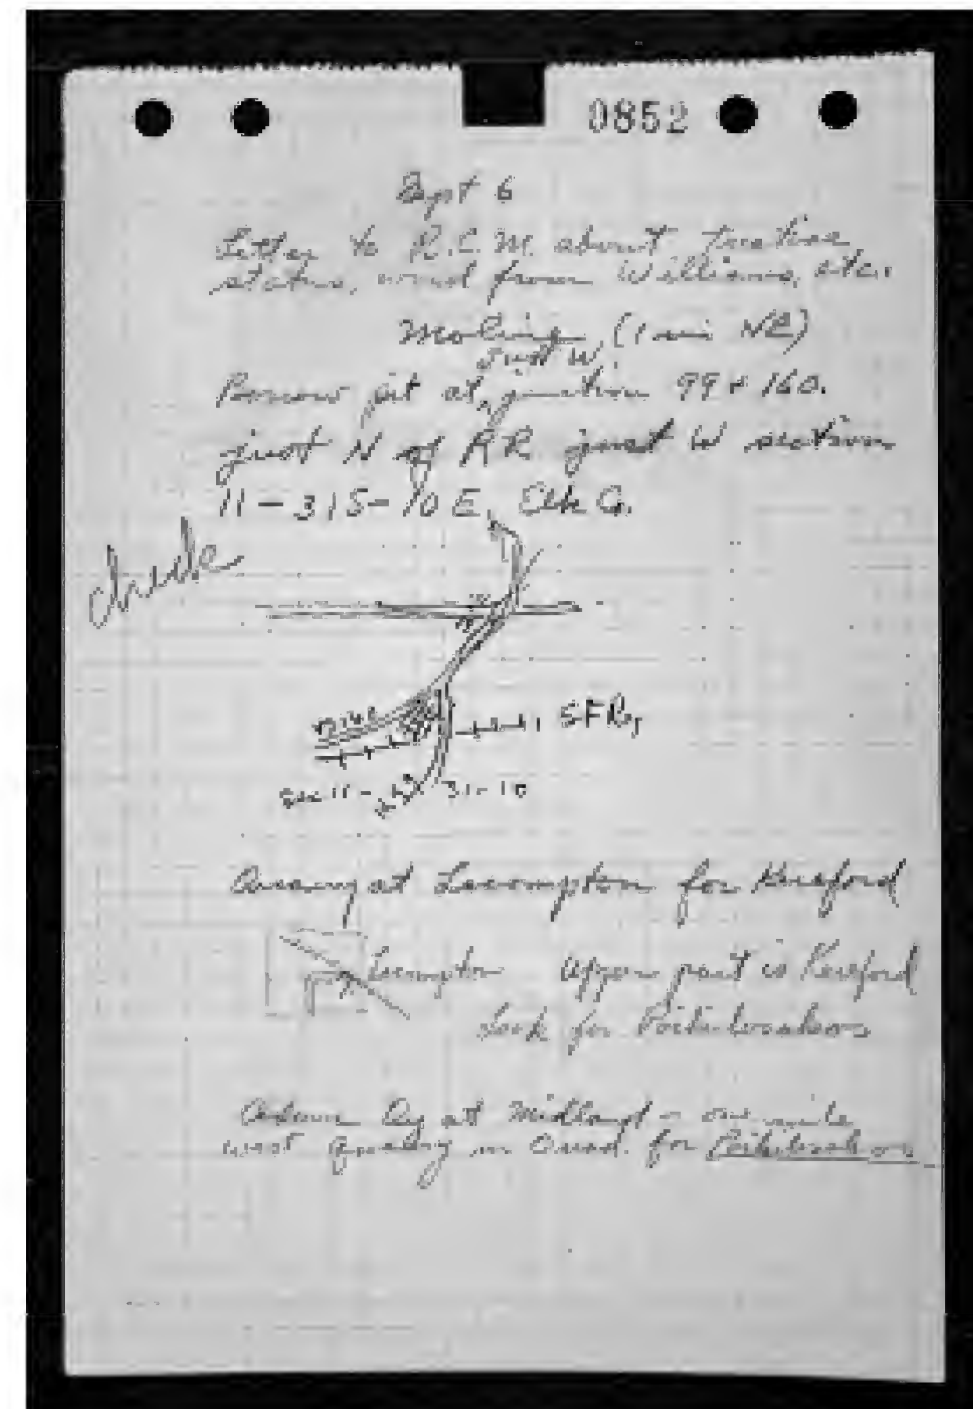 0852
Sept 6
Letter to R.C.M. about
status, word from Williams, etc.
Moline, (1 mi NE)
Just W
Borrow pit at junction 99 & 160.
just N of RR just W section
11-31S-10E, Elk Co.
check
SF Ry
Sec 11 - 31-10
Quarry at Lecompton for Kereford
Lecompton Upper part is Kereford
Look for
at Midland - one mile
west quarry in Quad. for